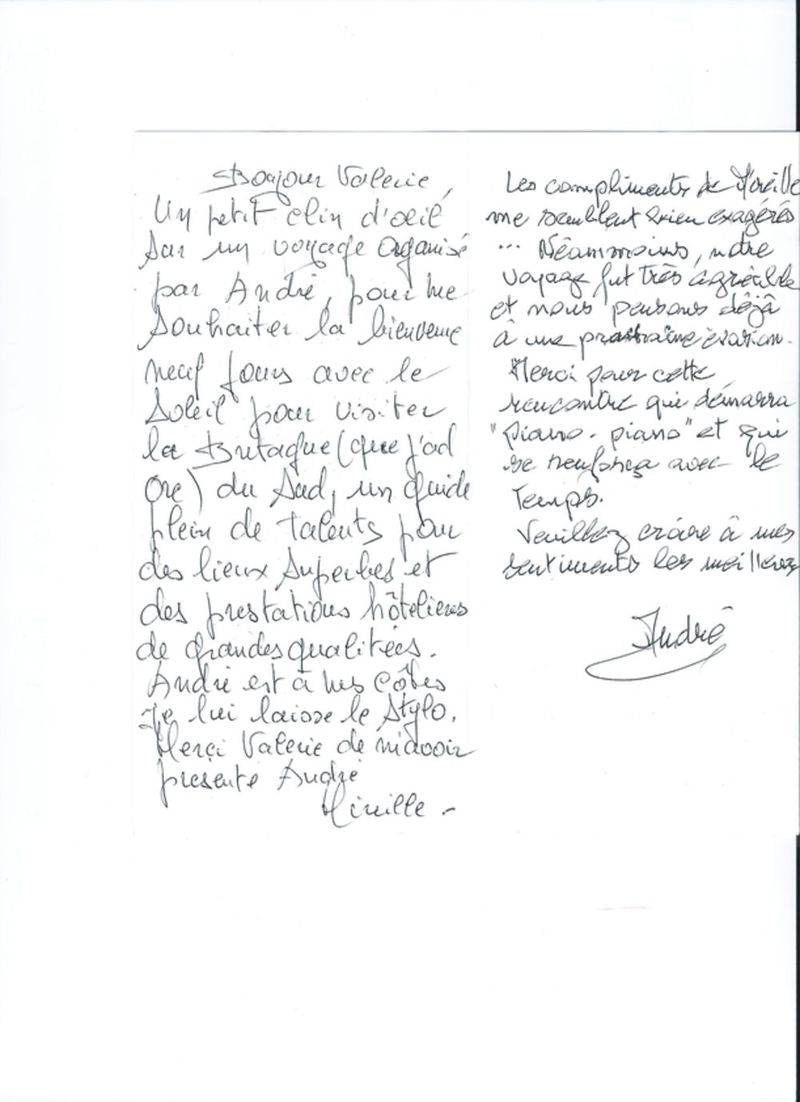 Bonjour Valerie,
Un petit clin d'oeil
sur un voyage organisé
par André, pour me
souhaiter la bienvenue
neuf jours avec le
Soleil pour visiter
la Bretagne (que j'ad
ore) du Sud, un guide
plein de talents pour
des lieux superbes et
des prestations hôtelieres
de grandes qualitées.
André est à mes côtés
Je lui laisse le stylo.
Merci Valerie de m'avoir
presente André
Mireille -
Les compliments de Mireille
me semblent bien exagérés
... Néammoins, notre
voyage fut très agréable
et nous pensons déjà
à une prochaine évasion.
Merci pour cette
rencontre qui démarra
"piano-piano" et qui
se renforça avec le
temps.
Veuillez croire à mes
sentiments les meilleurs
André